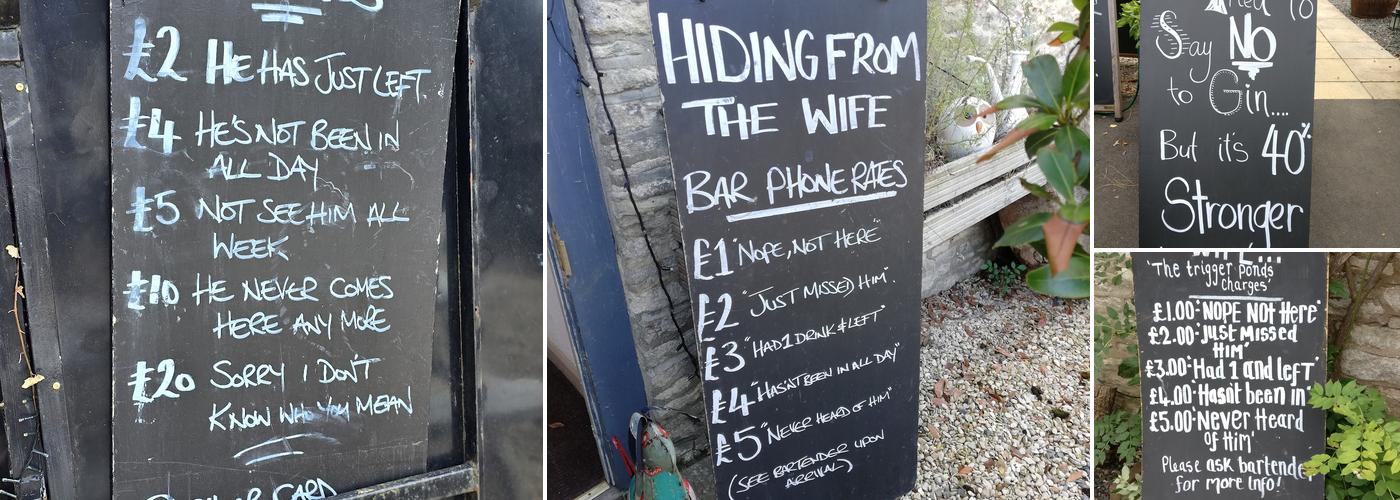 £2 HE HAS JUST LEFT.
£4 HE'S NOT BEEN IN
ALL DAY
£5 NOT SEE HIM ALL
WEEK
£10 HE NEVER COMES
HERE ANY MORE
£20 SORRY I DON'T
KNOW WHO YOU MEAN
CARD
HIDING FROM
THE WIFE
BAR PHONE RATES
£1 "NOPE, NOT HERE"
£2 "JUST MISSED HIM".
£3 "HAD 1 DRINK & LEFT"
£4 "HASN'T BEEN IN ALL DAY"
£5 "NEVER HEARD OF HIM"
(SEE BARTENDER UPON
ARRIVAL)
to
Say No
to Gin....
But it's 40%
Stronger
'The trigger ponds
charges'
£1.00 'NOPE NOT Here'
£2.00 'Just Missed
HIM'
£3.00 'Had 1 and left'
£4.00 'Hasnt been in'
£5.00 'Never Heard
of Him'
Please ask bartender
for more Info!